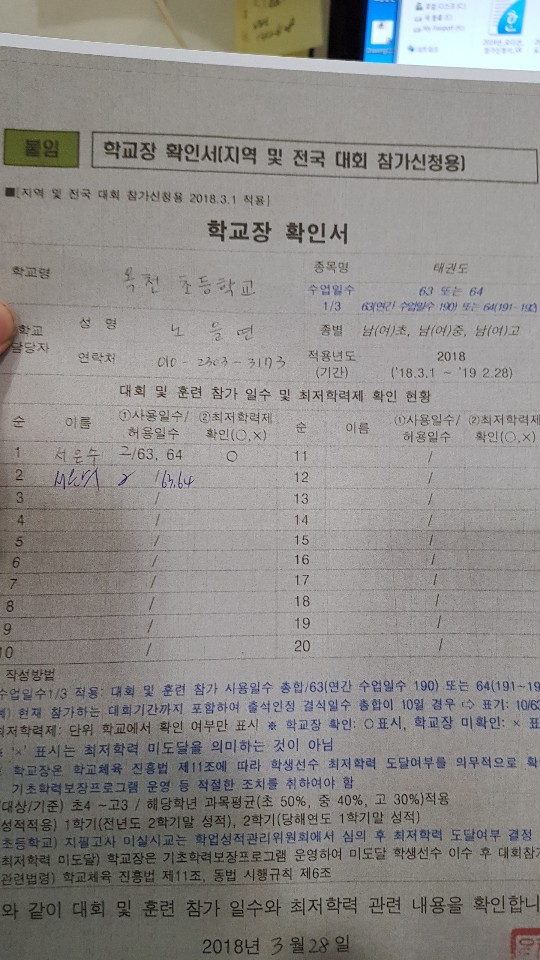 붙임
학교장 확인서(지역 및 전국 대회 참가신청용)
■[지역 및 전국 대회 참가신청용 2018.3.1 적용]
학교장 확인서
학교명 옥천 초등학교 종목명 태권도
수업일수 1/3 63 또는 64
63(연간 수업일수 190) 또는 64(191~192)
학교 담당자 성 명 노 을 연 종별 남(여)초, 남(여)중, 남(여)고
연락처 010-2303-3173 적용년도 (기간) 2018
('18.3.1 ~ '19 2.28)
대회 및 훈련 참가 일수 및 최저학력제 확인 현황
순 이름 ①사용일수/허용일수 ②최저학력제 확인(○,×) 순 이름 ①사용일수/허용일수 ②최저학력제 확인(○,×)
1 서은수 2/63, 64 ○ 11 /
2 2 /63.64 12 /
3 / 13 /
4 / 14 /
5 / 15 /
6 / 16 /
7 / 17 /
8 / 18 /
9 / 19 /
10 / 20 /
작성방법
수업일수1/3 적용: 대회 및 훈련 참가 사용일수 총합/63(연간 수업일수 190) 또는 64(191~19
예) 현재 참가하는 대회기간까지 포함하여 출석인정 결석일수 총합이 10일 경우 ⇨ 표기: 10/63
최저학력제: 단위 학교에서 확인 여부만 표시 ※ 학교장 확인: ○표시, 학교장 미확인: × 표
'×' 표시는 최저학력 미도달을 의미하는 것이 아님
학교장은 학교체육 진흥법 제11조에 따라 학생선수 최저학력 도달여부를 의무적으로 확
기초학력보장프로그램 운영 등 적절한 조치를 취하여야 함
(대상/기준) 초4 ~고3 / 해당학년 과목평균(초 50%, 중 40%, 고 30%)적용
성적적용) 1학기(전년도 2학기말 성적), 2학기(당해연도 1학기말 성적)
(초등학교) 지필고사 미실시교는 학업성적관리위원회에서 심의 후 최저학력 도달여부 결정
최저학력 미도달) 학교장은 기초학력보장프로그램 운영하여 미도달 학생선수 이수 후 대회참가
관련법령) 학교체육 진흥법 제11조, 동법 시행규칙 제6조
와 같이 대회 및 훈련 참가 일수와 최저학력 관련 내용을 확인합니
2018년 3월 28일